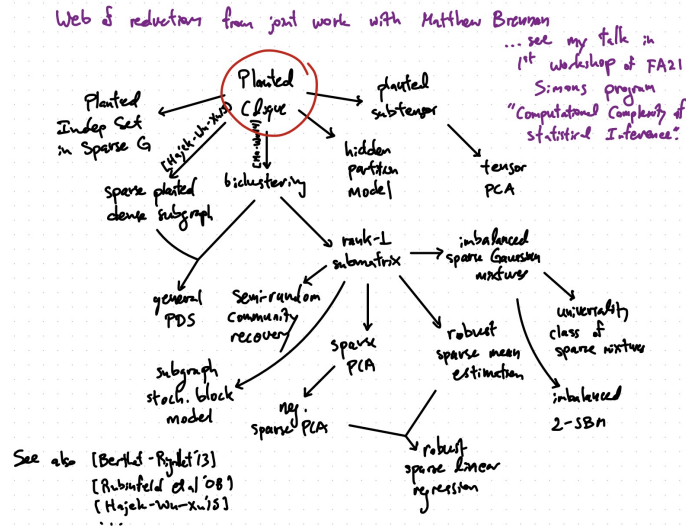 Web of reductions from joint work with Matthew Brennan
... see my talk in
1st workshop of FA21
Simons program
"Computational Complexity of
Statistical Inference"
Planted
Clique
Planted
Indep Set
in Sparse G
[Hajek-Wu-Xu15]
planted
subtensor
hidden
partition
model
tensor
PCA
sparse planted
dense subgraph
biclustering
rank-1
submatrix
imbalanced
sparse Gaussian
mixtures
general
PDS
semi-random
community
recovery
sparse
PCA
robust
sparse mean
estimation
universality
class of
sparse mixtures
subgraph
stoch. block
model
neg.
sparse PCA
imbalanced
2-SBM
robust
sparse linear
regression
See also [Berthet-Rigollet'13]
[Rubinfeld et al '08]
[Hajek-Wu-Xu'15]
...